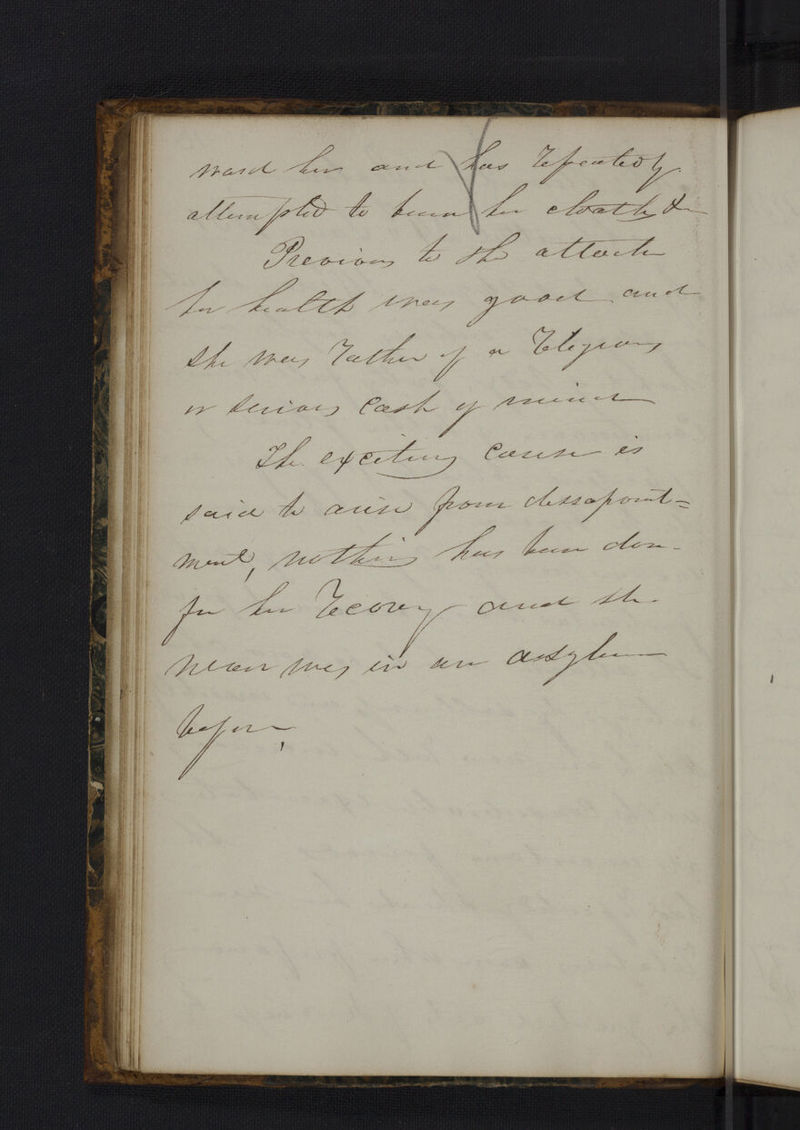 ward her and has repeatedly
attempted to burn her cloath &c
Previous to the attack
her health was good and
she was rather of a religious
or serious cast of mind
The exciting cause is
said to arise from dissapoint=
ment, nothing has been done
for her recovery and she
never was in an assylum
before,